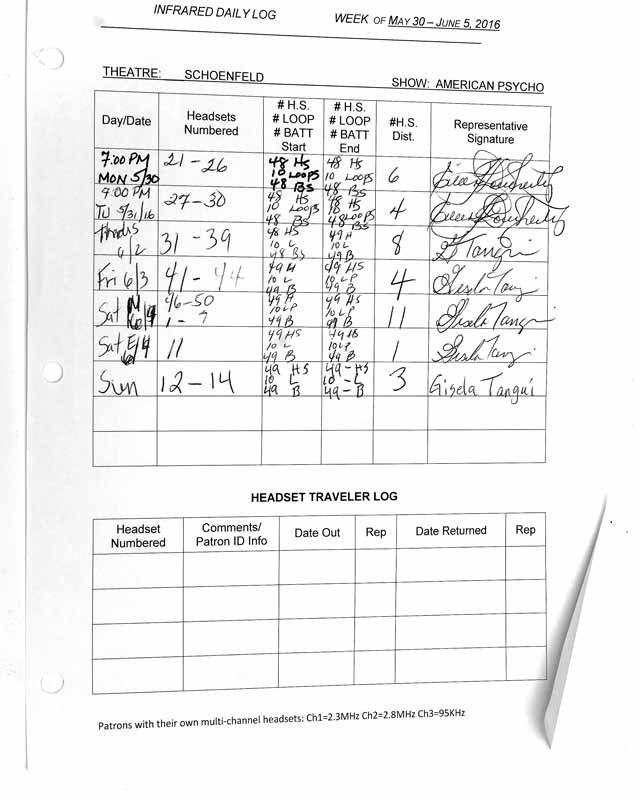 INFRARED DAILY LOG WEEK OF MAY 30 – JUNE 5, 2016
THEATRE: SCHOENFELD SHOW: AMERICAN PSYCHO
Day/Date
Headsets
Numbered
# H.S.
# LOOP
# BATT
Start
# H.S.
# LOOP
# BATT
End
#H.S.
Dist.
Representative
Signature
7:00 PM
MON 5/30
21 - 26
48 HS
10 LOOPS
48 BS
48 HS
10 LOOPS
48 BS
6
TU 5/31/16
27-30
48 HS
10 LOOPS
48 BS
48 HS
10 LOOPS
48 BS
4
Thurs
6/2
31 - 39
48 HS
10 L
48 BS
49 H
10 L
49 B
8
G Tangui
Fri 6/3
41 - 44
49 H
10 L
49 B
49 HS
10 LP
49 B
4
Gisela Tangui
Sat M
6/4
46-50
1 - 7
49 H
10 LP
49 B
49 HS
10 LP
49 B
11
Gisela Tangui
Sat E
6/4
11
49 HS
10 L
49 B
10 LP
49 B
1
Gisela Tangui
Sun
12 - 14
49 HS
10 L
49 B
49 - HS
10 - L
49 - B
3
Gisela Tangui
HEADSET TRAVELER LOG
Headset
Numbered
Comments/
Patron ID Info
Date Out
Rep
Date Returned
Rep
Patrons with their own multi-channel headsets: Ch1=2.3MHz Ch2=2.8MHz Ch3=95KHz